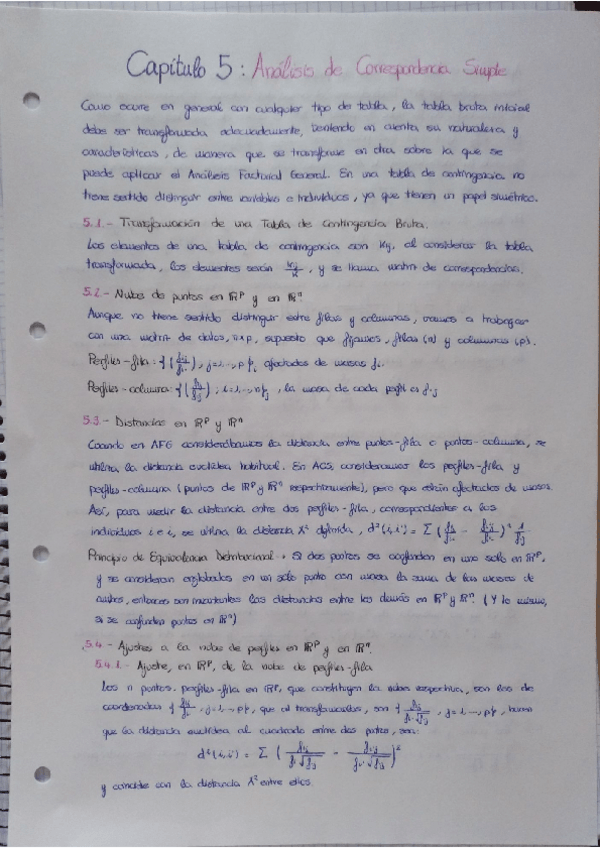 Capítulo 5: Análisis de Correspondencia Simple
Como ocurre en general con cualquier tipo de tabla, la tabla bruta inicial
debe ser transformada adecuadamente, teniendo en cuenta su naturaleza y
características, de manera que se transforme en otra sobre la que se
puede aplicar el Análisis Factorial General. En una tabla de contingencia no
tiene sentido distinguir entre variables e individuos, ya que tienen un papel simétrico.
5.1.- Transformación de una Tabla de Contingencia Bruta.
Los elementos de una tabla de contingencia son kij, al considerar la tabla
transformada, los elementos serán kij/k, y se llama matriz de correspondencias.
5.2.- Nubes de puntos en ℝᵖ y en ℝⁿ
Aunque no tiene sentido distinguir entre filas y columnas, vamos a trabajar
con una matriz de datos, n×p, supuesto que fijamos, filas (n) y columnas (p).
Perfiles-fila: {(fij/fi.), j=1,...,p}, afectados de masas fi.
Perfiles-columna: {(fij/f.j), i=1,...,n}, la masa de cada perfil es f.j
5.3.- Distancias en ℝᵖ y ℝⁿ
Cuando en AFG considerábamos la distancia entre puntos-fila o puntos-columna, se
utiliza la distancia euclídea habitual. En ACS, consideramos los perfiles-fila y
perfiles-columna (puntos de ℝᵖ y ℝⁿ respectivamente), pero que están afectados de masas.
Así, para medir la distancia entre dos perfiles-fila, correspondientes a los
individuos i e i', se utiliza la distancia χ² definida, d²(i,i') = Σ (fij/fi. - fi'j/fi'.)² 1/f.j
Principio de Equivalencia Distribucional → Si dos puntos se confunden en uno solo en ℝᵖ,
y se consideran englobados en un sólo punto con masa la suma de las masas de
ambos, entonces son invariantes las distancias entre los demás en ℝᵖ y ℝⁿ. (Y lo mismo,
si se confunden puntos en ℝⁿ)
5.4.- Ajustes a la nube de perfiles en ℝᵖ y en ℝⁿ.
5.4.1.- Ajuste, en ℝᵖ, de la nube de perfiles-fila
Los n puntos-perfiles-fila en ℝᵖ, que constituyen la nube respectiva, son los de
coordenadas {fij/fi., j=1,...,p}, que al transformarlos, son {fij/fi.√f.j, j=1,...,p},
que la distancia euclídea al cuadrado entre dos puntos, sea:
d²(i,i') = Σ (fij/fi.√f.j - fi'j/fi'.√f.j)²
y coincide con la distancia χ² entre ellos.